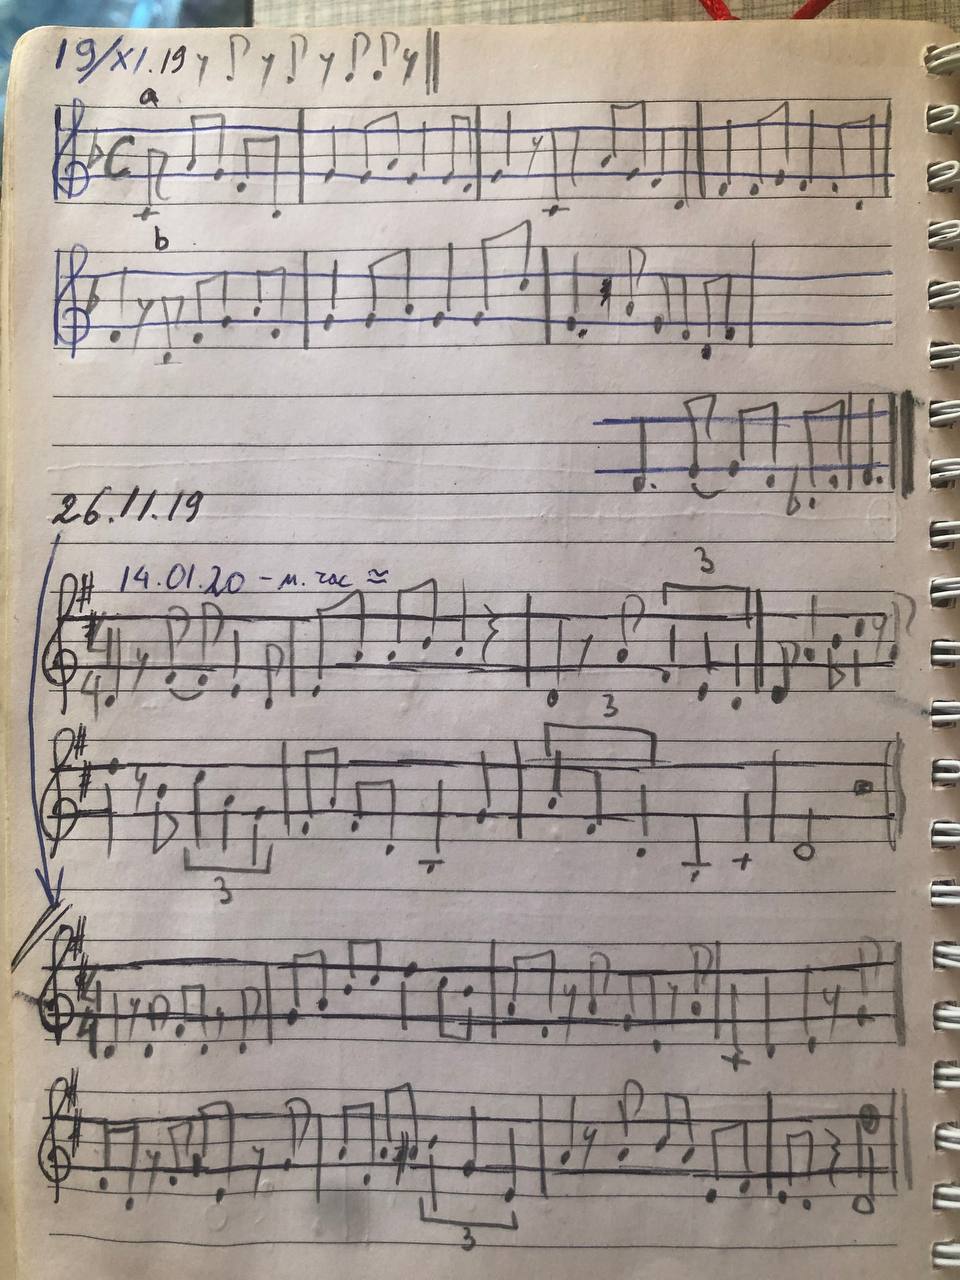 19/XI.19
a
C
b
26.11.19
14.01.20 – м. час ≅
3
4
4
3
3
4
4
3